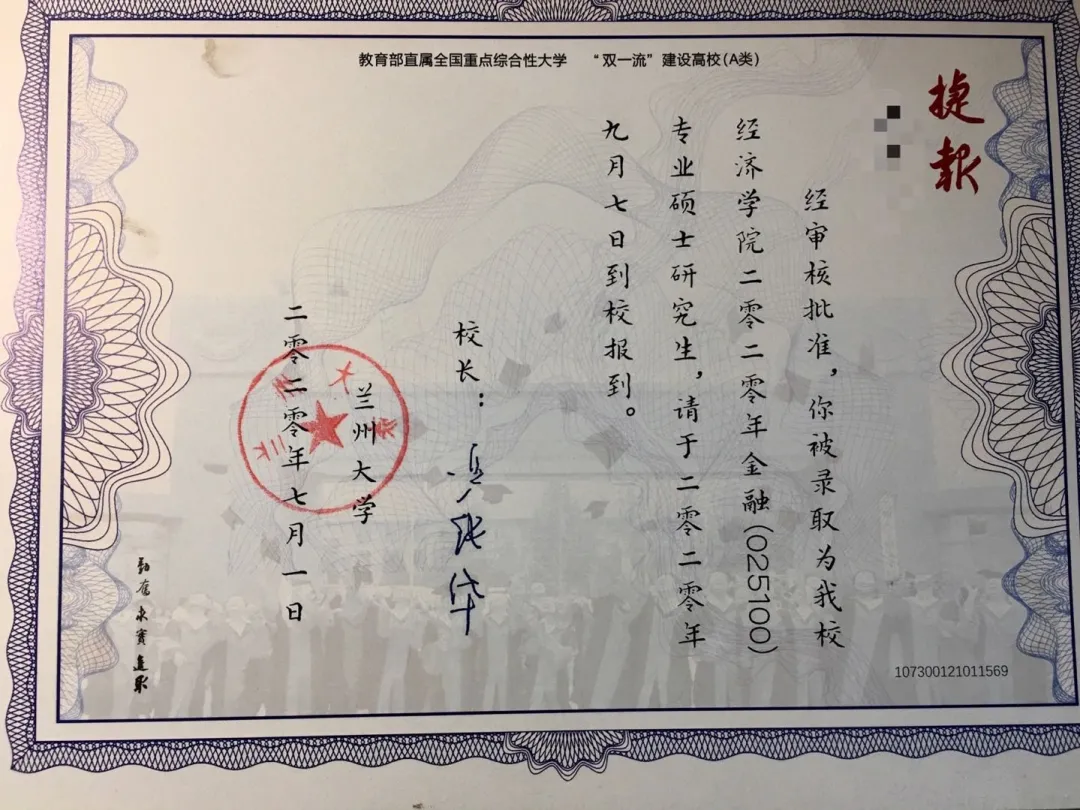 教育部直属全国重点综合性大学 “双一流”建设高校(A类)
捷报
经审核批准，你被录取为我校
经济学院二零二零年金融(025100)
专业硕士研究生，请于二零二零年
九月七日到校报到。
校长：
兰州大学
二零二零年七月一日
勤奋求实进取
107300121011569